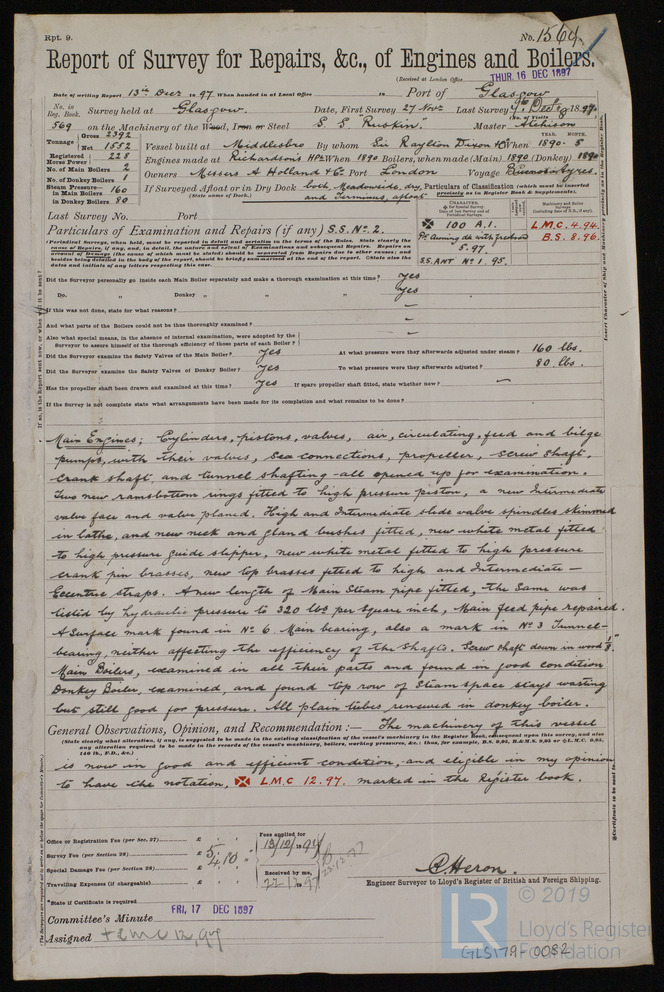 Rpt. 9.
No. 1564
Report of Survey for Repairs, &c., of Engines and Boilers.
(Received at London Office THUR. 16 DEC 1897
Date of writing Report 13th Decr 1897 When handed in at Local Office 18 Port of Glasgow
No. in Reg. Book. Survey held at Glasgow. Date, First Survey 27 Novr Last Survey 9th Decr 1897.
(No. of Visits 8)
569 on the Machinery of the Wood, Iron or Steel S. S. "Ruskin". Master Atchison
Tonnage Gross 2392
Net 1552
Vessel built at Middlesbro By whom Sir Raylton Dixon & Co When 1890 - 5
YEAR. MONTH.
Registered Horse Power 228
Engines made at Richardson's HPL When 1890 Boilers, when made (Main) 1890 (Donkey) 1890
No. of Main Boilers 2
No. of Donkey Boilers 1
Owners Messrs A Holland & Co. Port London Voyage Buenos Ayres.
Steam Pressure in Main Boilers 160
in Donkey Boilers 80
If Surveyed Afloat or in Dry Dock both, Meadowside, dry, and Terminus, afloat
(State name of Dock.)
Particulars of Classification (which must be inserted precisely as in Register Book & Supplements).
Last Survey No. Port
100 A.1.
5.97.
S.S. ANT No 1. 95.
L.M.C. 4.94.
B.S. 8.96.
Particulars of Examination and Repairs (if any) S.S. No. 2.
Did the Surveyor personally go inside each Main Boiler separately and make a thorough examination at this time? yes
Do. " Donkey " " " " yes
If this was not done, state for what reasons? –
And what parts of the Boilers could not be thus thoroughly examined? –
Also what special means, in the absence of internal examination, were adopted by the Surveyor to assure himself of the thorough efficiency of those parts of each Boiler? –
Did the Surveyor examine the Safety Valves of the Main Boiler? yes At what pressure were they afterwards adjusted under steam? 160 lbs.
Did the Surveyor examine the Safety Valves of Donkey Boiler? yes To what pressure were they afterwards adjusted? 80 lbs.
Has the propeller shaft been drawn and examined at this time? yes If spare propeller shaft fitted, state whether new? –
If the Survey is not complete state what arrangements have been made for its completion and what remains to be done?
Main Engines; Cylinders, pistons, valves, air, circulating, feed and bilge
pumps, with their valves, Sea connections, propeller, screw shaft.
crank shaft, and tunnel shafting - all opened up for examination.
Two new ramsbottom rings fitted to high pressure piston, a new Intermediate
valve face and valve planed. High and Intermediate slide valve spindles skimmed
in lathe, and new neck and gland bushes fitted, new white metal fitted
to high pressure guide slipper, new white metal fitted to high pressure
crank pin brasses, new top brasses fitted to high and Intermediate –
Eccentric straps. A new length of Main Steam pipe fitted, the same was
tested by hydraulic pressure to 320 lbs per square inch, Main feed pipe repaired.
A surface mark found in No 6 Main bearing, also a mark in No 3 Tunnel-
bearing, neither affecting the efficiency of the shafts. Screw shaft down in wood 1/8".
Main Boilers, examined in all their parts and found in good condition
Donkey Boiler, examined, and found top row of steam space stays wasting
but still good for pressure. All plain tubes renewed in donkey boiler.
General Observations, Opinion, and Recommendation:— The machinery of this vessel
is now in good and efficient condition, and eligible in my opinion
to have the notation, L.M.C. 12.97. marked in the Register book.
Office or Registration Fee (per Sec. 27) £
Survey Fee (per Section 28) £ 5
Special Damage Fee (per Section 28) £
Travelling Expenses (if chargeable) £
Fees applied for
13/12/1897
Received by me,
22.12.97
23.12.97
R. Heron.
Engineer Surveyor to Lloyd's Register of British and Foreign Shipping.
*State if Certificate is required
Committee's Minute FRI, 17 DEC 1897
Assigned + LMC 12,97
© 2019
LR Lloyd's Register Foundation
GLS179-0082